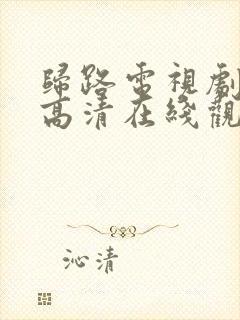 歸路電視劇
高清在綫觀
沁清